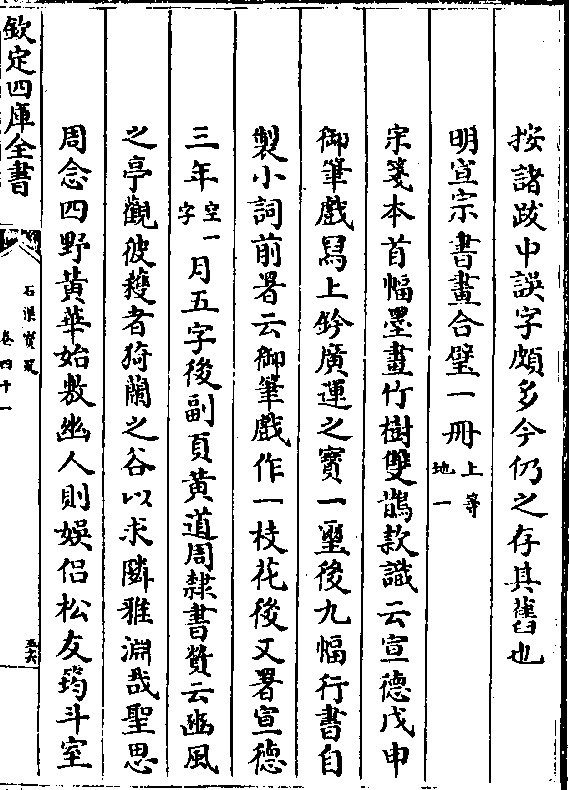 按諸跋中誤字頗多今仍之存其舊也
明宣宗書畫合璧一冊上等地一
宋箋本首幅墨畫竹樹雙鵲款識云宣德戊申
御筆戲冩上鈐廣運之寶一璽後九幅行書自
製小詞前署云御筆戲作一枝花後又署宣德
三年空一字月五字後副頁黄道周隸書贊云豳風
之亭觀彼穫者猗蘭之谷以求隣雅淵哉聖思
周念四野黄華始敷幽人則娱侣松友筠斗室
欽定四庫全書
石渠寳笈
卷四十一